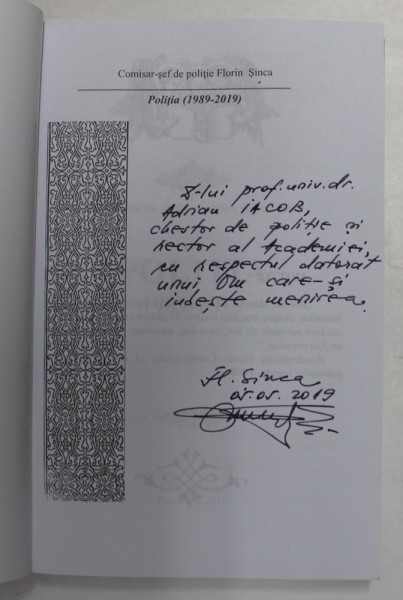 Comisar-șef de poliție Florin Șinca
Poliția (1989-2019)
D-lui prof. univ. dr.
Adrian IACOB,
chestor de poliție și
rector al Academiei,
cu respectul datorat
unui Om care-și
iubește menirea.
Fl. Șinca
05.05.2019